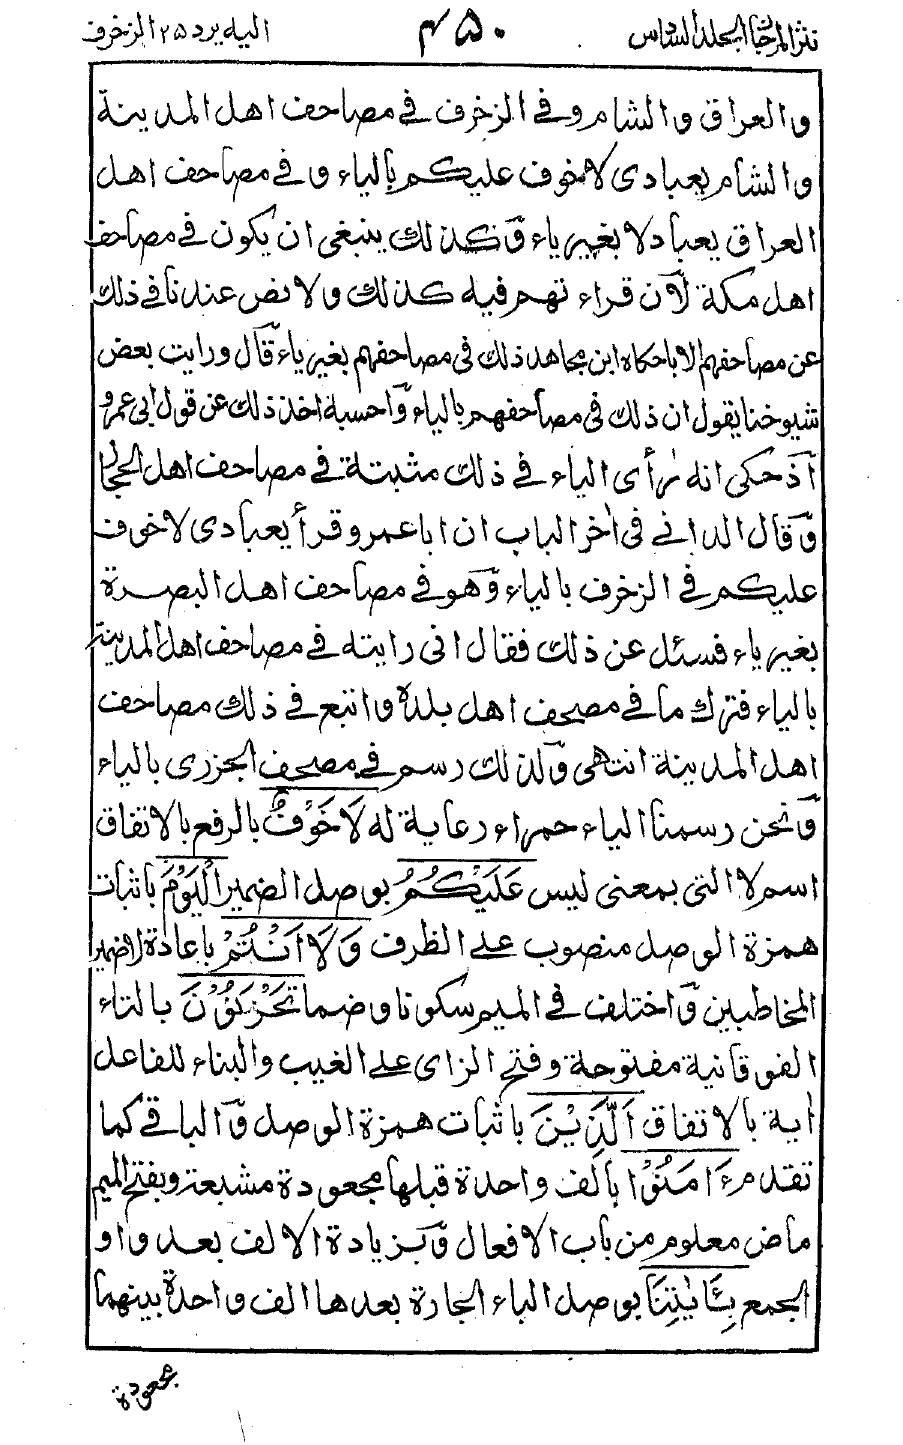 نثر المرجان المجلد السادس ٤٥٠ اليه يرد ٢٥ الزخرف
والعراق والشام وفى الزخرف فى مصاحف اهل المدينة
والشام يعبادى لاخوف عليكم بالياء وفى مصاحف اهل
العراق يعباد لا بغير ياء وكذلك ينبغى ان يكون فى مصاحف
اهل مكة لان قراءتهم فيه كذلك ولا نص عندنا فى ذلك
عن مصاحفهم الا ما حكاه ابن مجاهد ذلك فى مصاحفهم بغير ياء قال ورايت بعض
شيوخنا يقول ان ذلك فى مصاحفهم بالياء واحسبه اخذ ذلك عن قول ابى عمرو
اذ حكى انه رأى الياء فى ذلك مثبتة فى مصاحف اهل الحجاز
وقال الدانى فى اٰخر الباب ان ابا عمرو قرأ يعبادى لاخوف
عليكم فى الزخرف بالياء وهو فى مصاحف اهل البصرة
بغير ياء فسئل عن ذلك فقال انى رايته فى مصاحف اهل المدينة
بالياء فترك ما فى مصحف اهل بلده واتبع فى ذلك مصاحف
اهل المدينة انتهى ولذلك رسم فى مصحف الجزرى بالياء
ونحن رسمنا الياء حمراء رعاية له لَاخَوْفٌ بالرفع بالاتفاق
اسم لا التى بمعنى ليس عَلَيْكُمُ بوصل الضمير الْيَوْمَ باثبات
همزة الوصل منصوب على الظرف وَلَا اَنْتُمْ باعادة لا ضمير
المخاطبين واختلف فى الميم سكونا وضما تَحْزَنُوْنَ بالتاء
الفوقانية مفتوحة وفتح الزاى على الغيب والبناء للفاعل
اٰية بالاتفاق اَلَّذِيْنَ باثبات همزة الوصل والباقى كما
تقدم ءَامَنُوْا بالف واحدة قبلها مجعودة مشبعة وبفتح الميم
ماض معلوم من باب الافعال وبزيادة الالف بعد واو
الجمع بِـَٔايٰتِنَا بوصل الباء الجارة بعدها الف واحدة بينهما
مجعودة